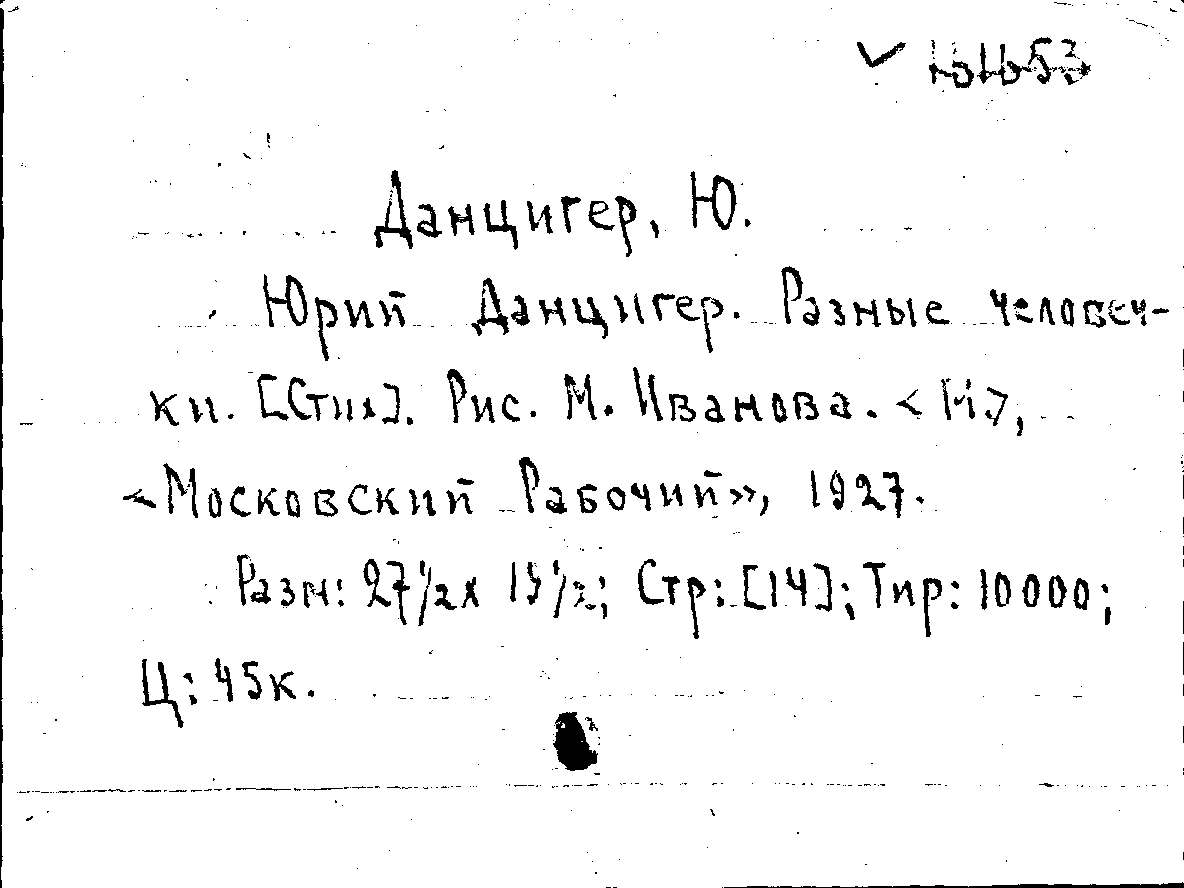 Данцигер, Ю.
Юрий Данцигер. Разные человеч-
ки. [Стих]. Рис. М. Иванова. <М.>,
«Московский Рабочий», 1927.
Разм: 27½ x 19½; Стр: [14]; Тир: 10000;
Ц: 45к.